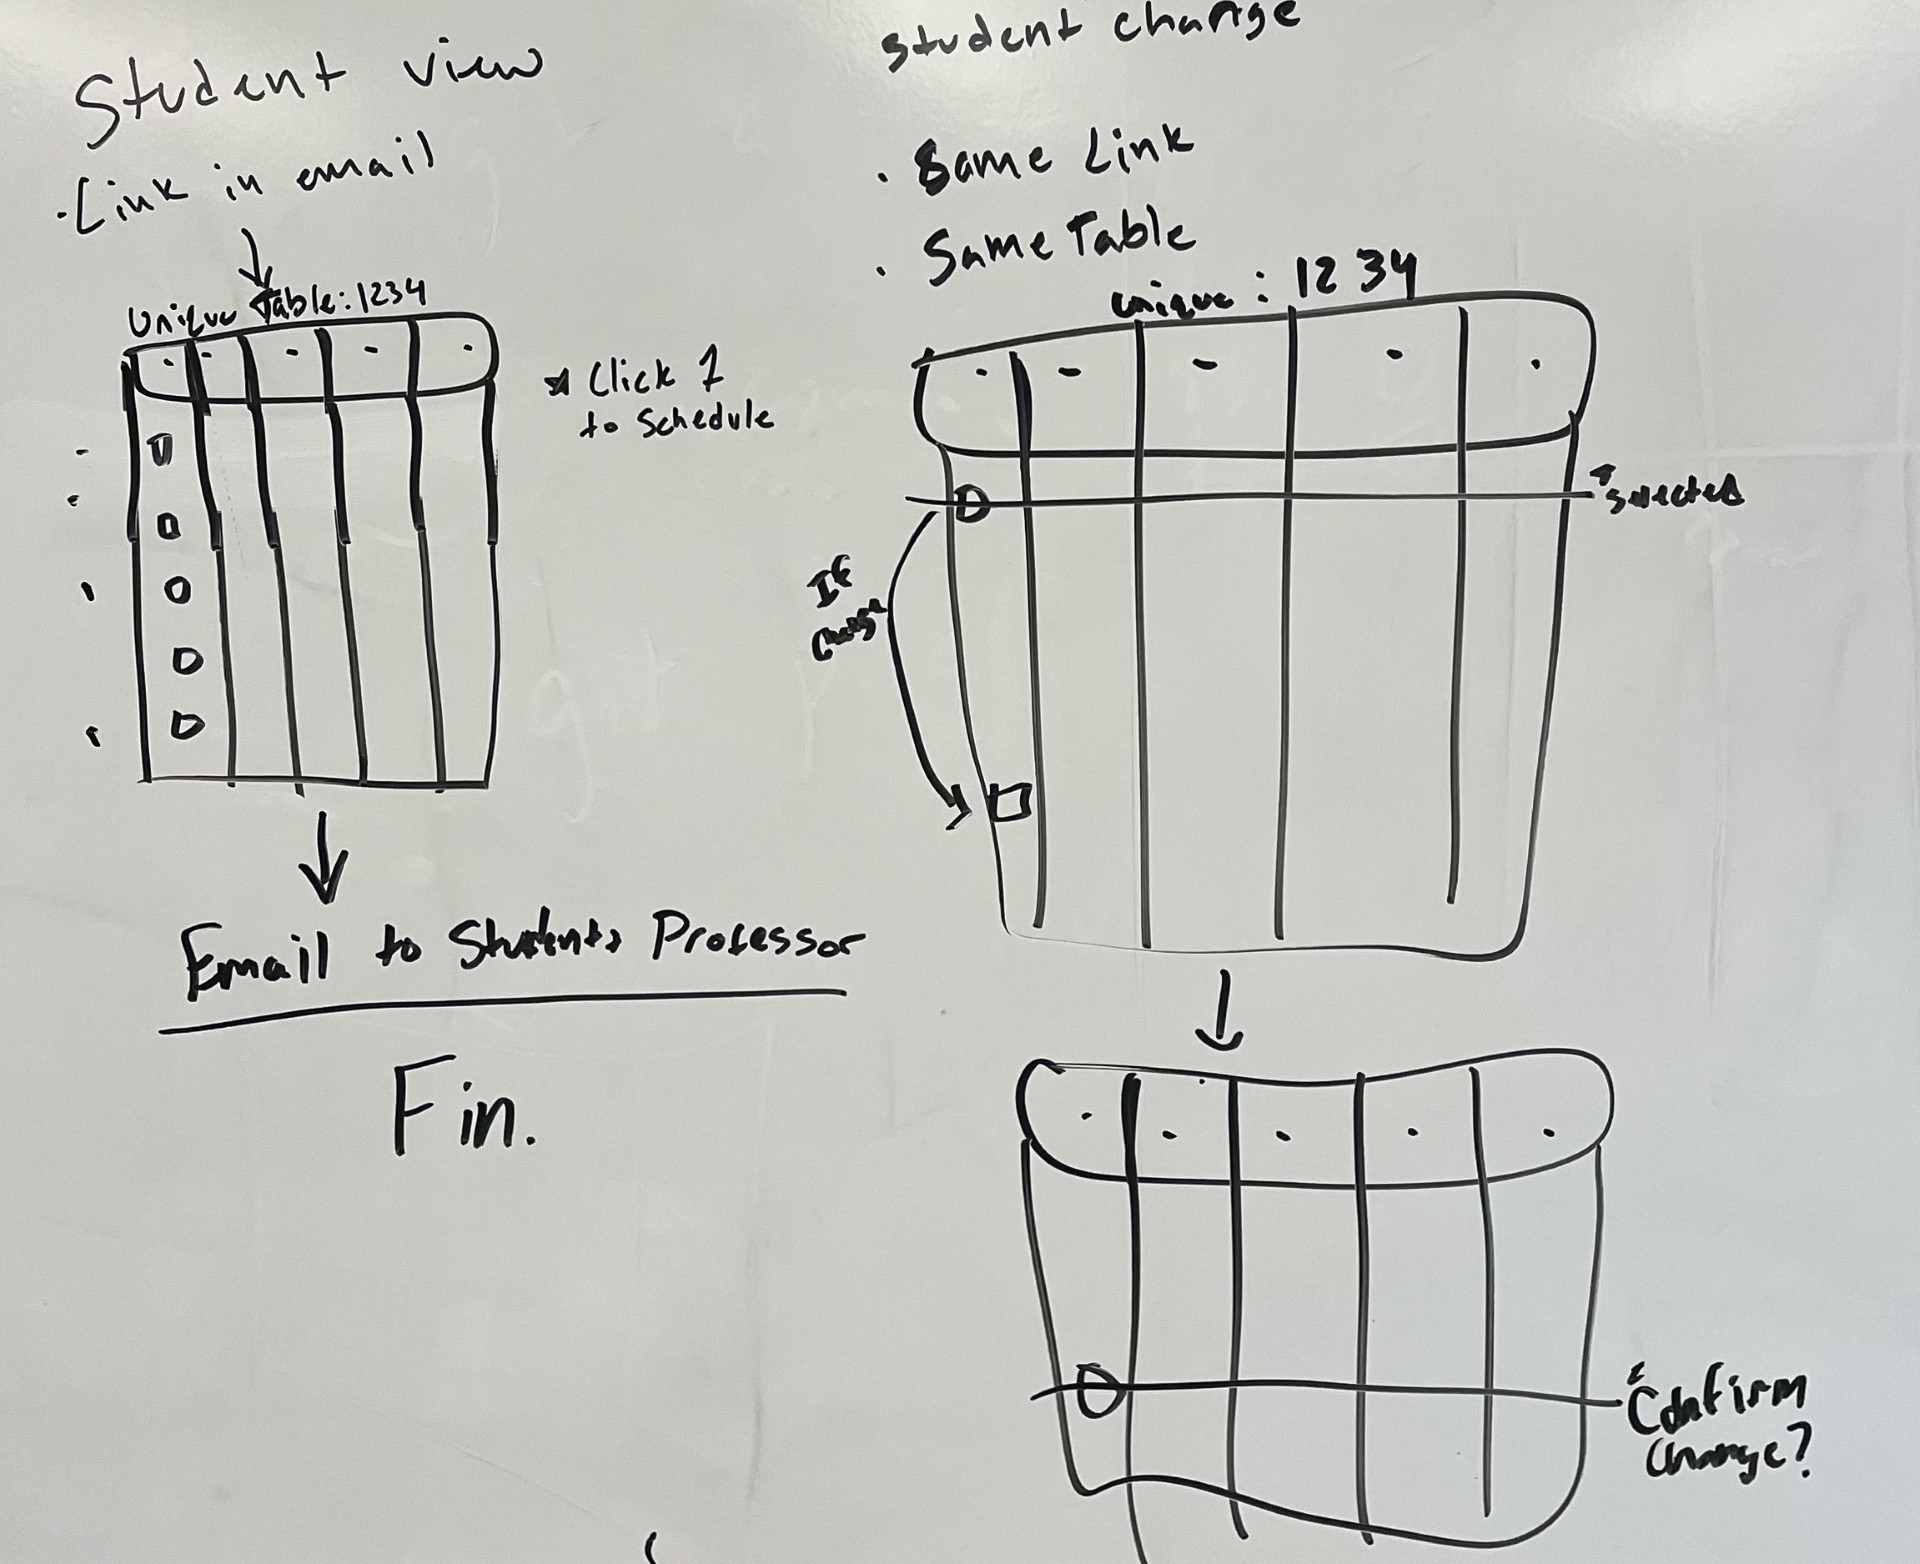 Student view
· Link in email
Unique Table: 1234
* Click 1
to Schedule
Email to Students Professor
Fin.
student change
· Same Link
· Same Table
unique: 1234
* selected
If
change
* Confirm
change?